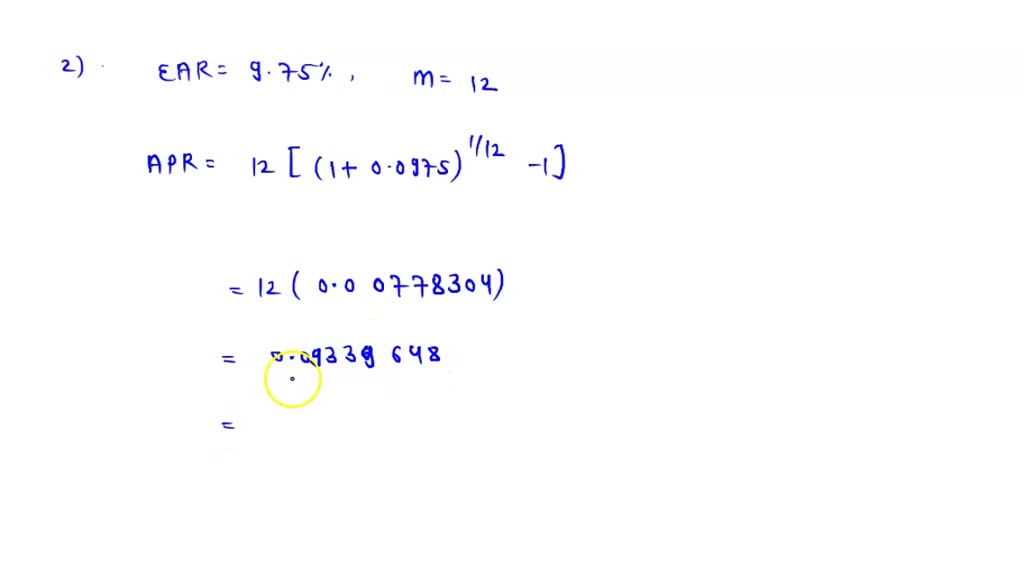 2) EAR = 9.75%, m = 12
APR = 12 [ (1 + 0.0975)^1/12 - 1 ]
= 12 ( 0.0 0778304)
= 0.09339 648
=